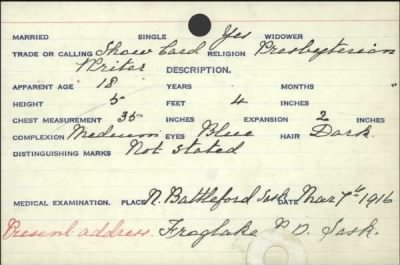 MARRIED SINGLE Yes WIDOWER
TRADE OR CALLING Show Card RELIGION Presbyterian
Writer DESCRIPTION.
APPARENT AGE 18 YEARS MONTHS
HEIGHT 5 FEET 4 INCHES
CHEST MEASUREMENT 35 INCHES EXPANSION 2 INCHES
COMPLEXION Medium EYES Blue HAIR Dark.
DISTINGUISHING MARKS Not Stated
MEDICAL EXAMINATION. PLACE N. Battleford Sask DATE Mar 7th 1916
Present address. Froglake P.O. Sask.